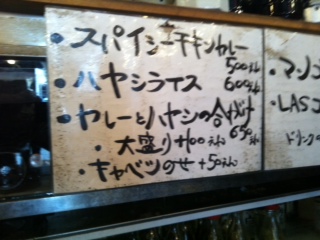 ・スパイシーチキンカレー
500えん
・ハヤシライス 600えん
・カレーとハヤシの合がけ
650えん
・大盛り+100えん
・キャベツのせ+50えん
・マンゴ
・LASS
ドリンク